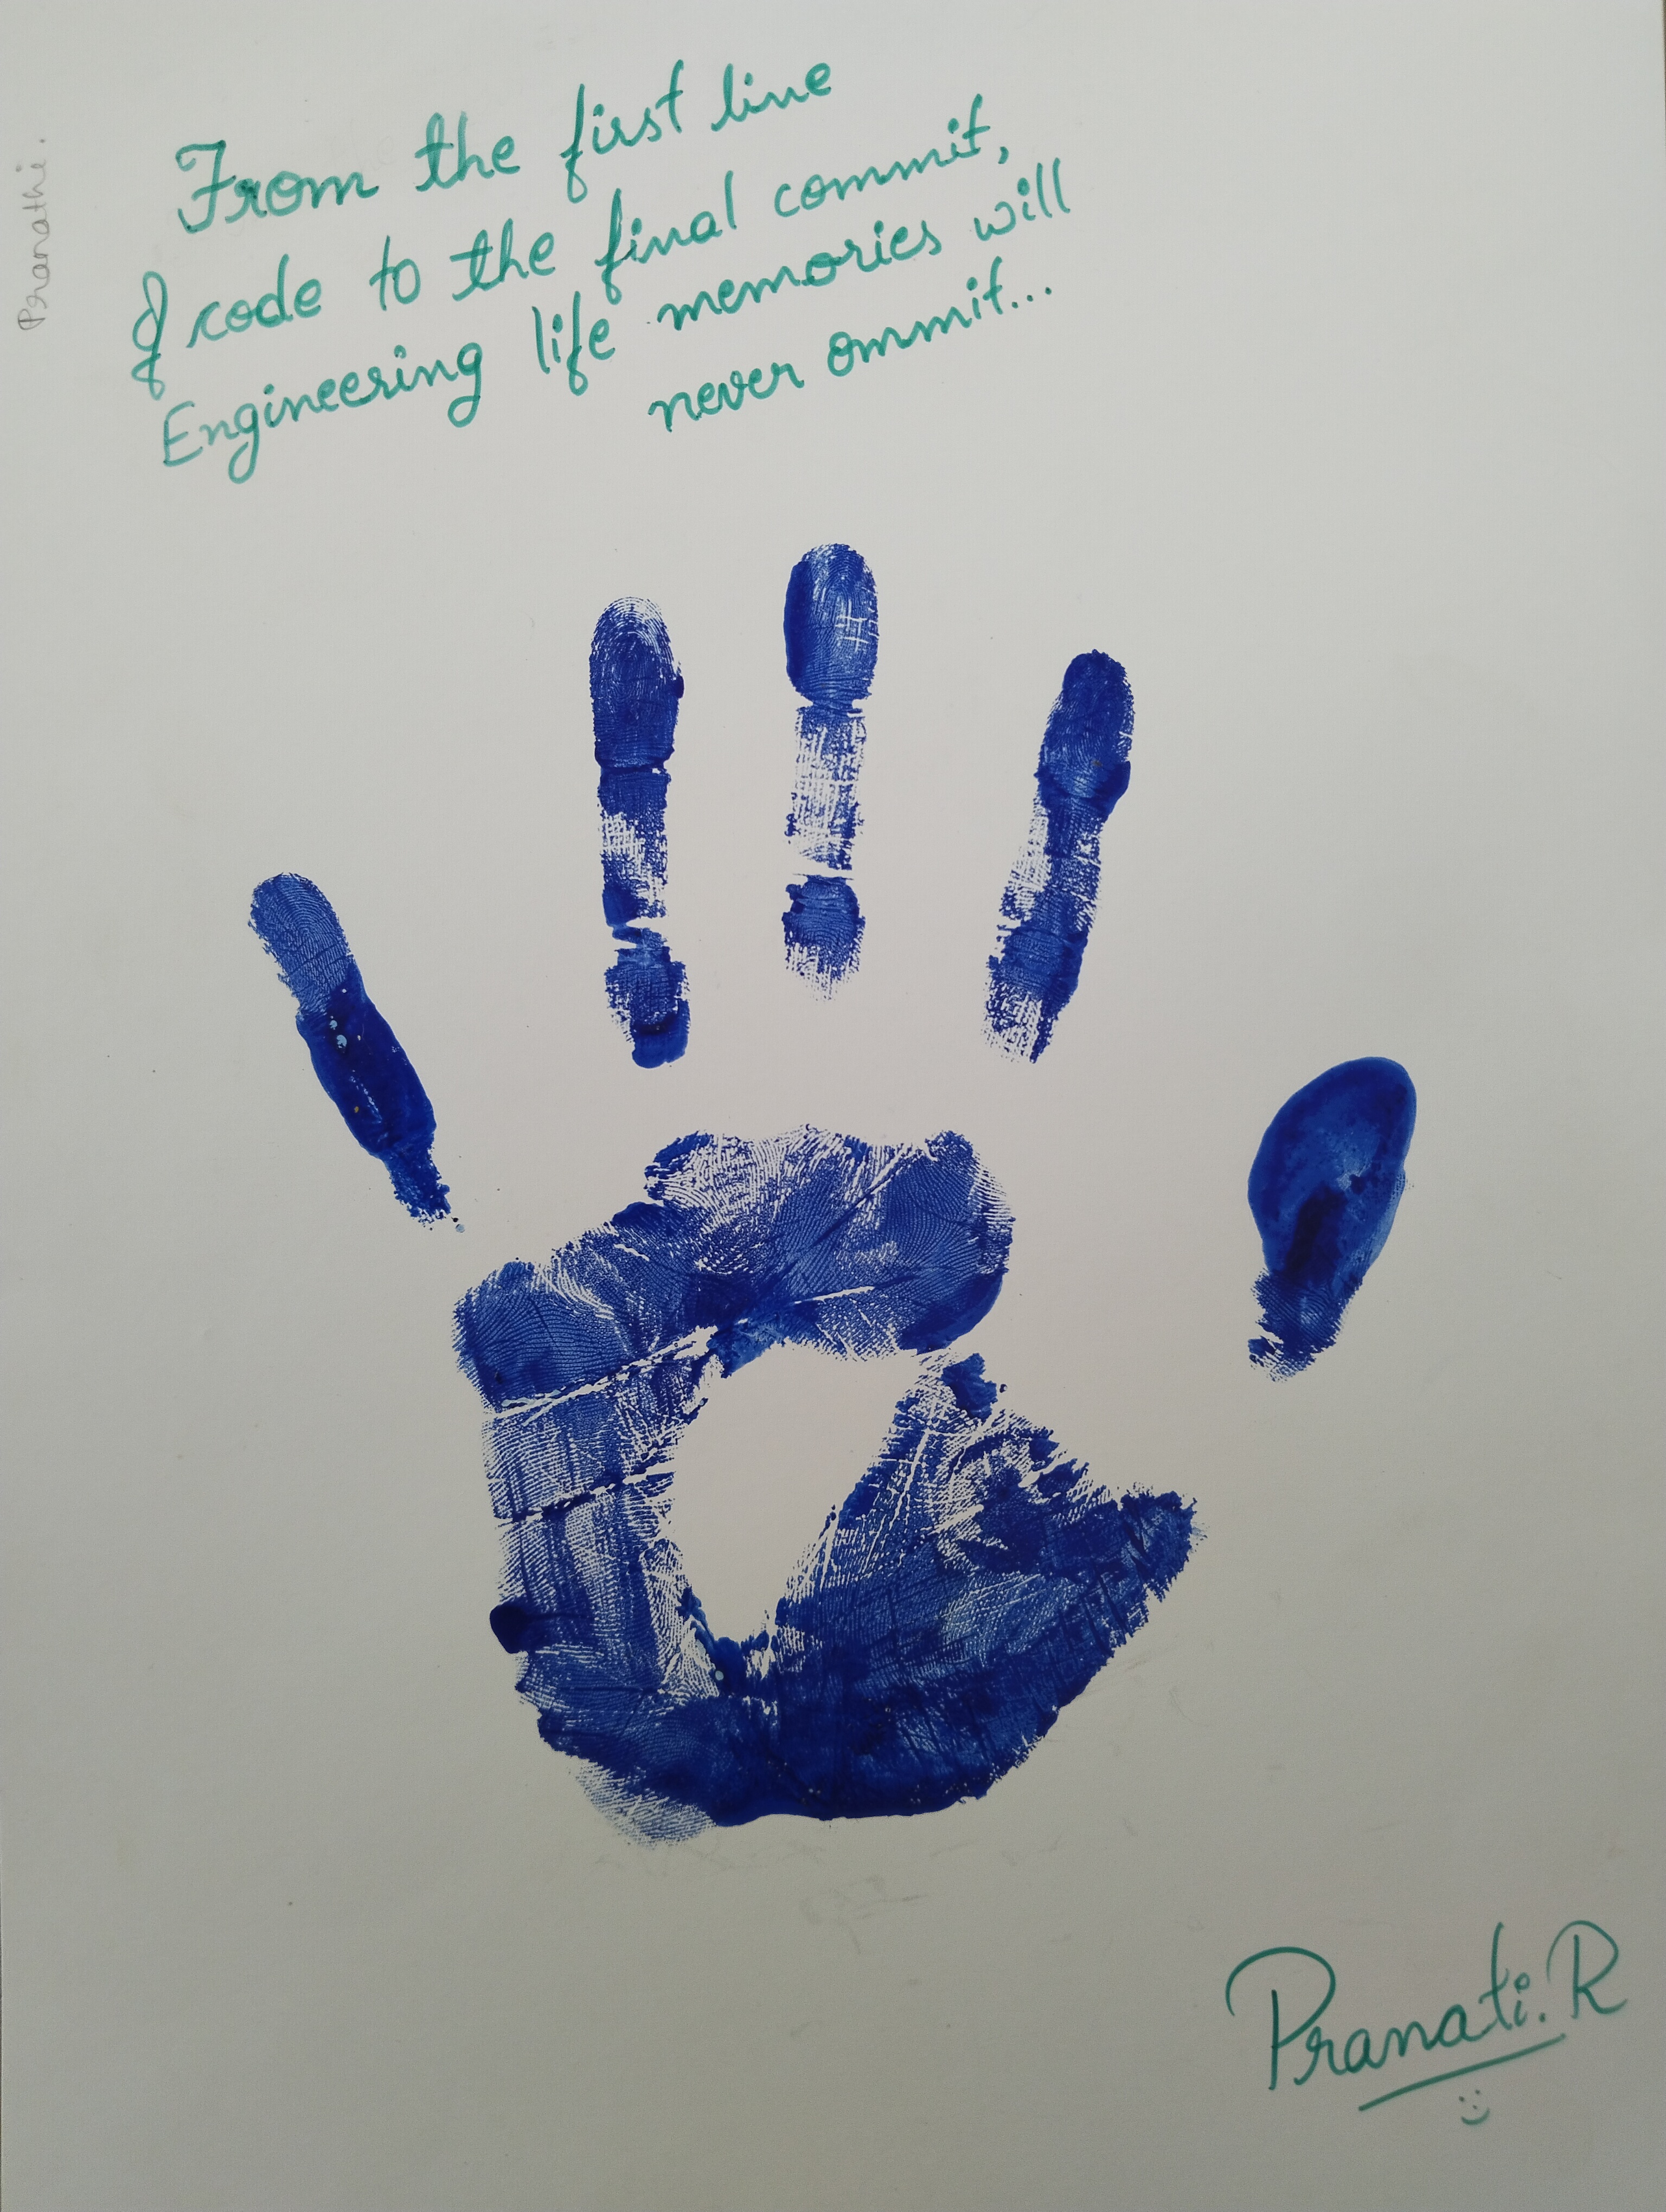 Pranathi.
From the first line
of code to the final commit,
Engineering life memories will
never ommit...
Pranati. R